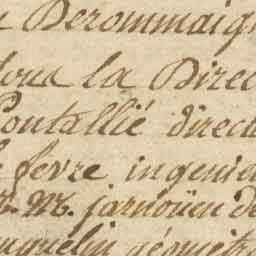 Derommaig
sous la Direc
Pontallié direct
fevre ingenie
M. jarnoüen de
uguelin géometr